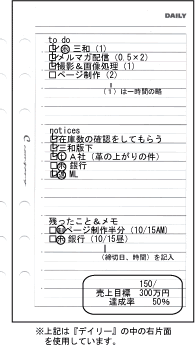 DAILY
to do
三和 (1)
メルマガ配信 (0.5×2)
撮影＆画像処理 (1)
□ページ制作 (2)
(1)は一時間の略
notices
在庫数の確認をしてもらう
三和版下
Ⓛ A社 (革の上がりの件)
銀行
ML
残ったこと＆メモ
ページ制作半分 (10/15AM)
銀行 (10/15昼)
(締切日、時間) を記入
150/
売上目標 300万円
達成率 50%
※上記は『デイリー』の中の右片面
を使用しています。